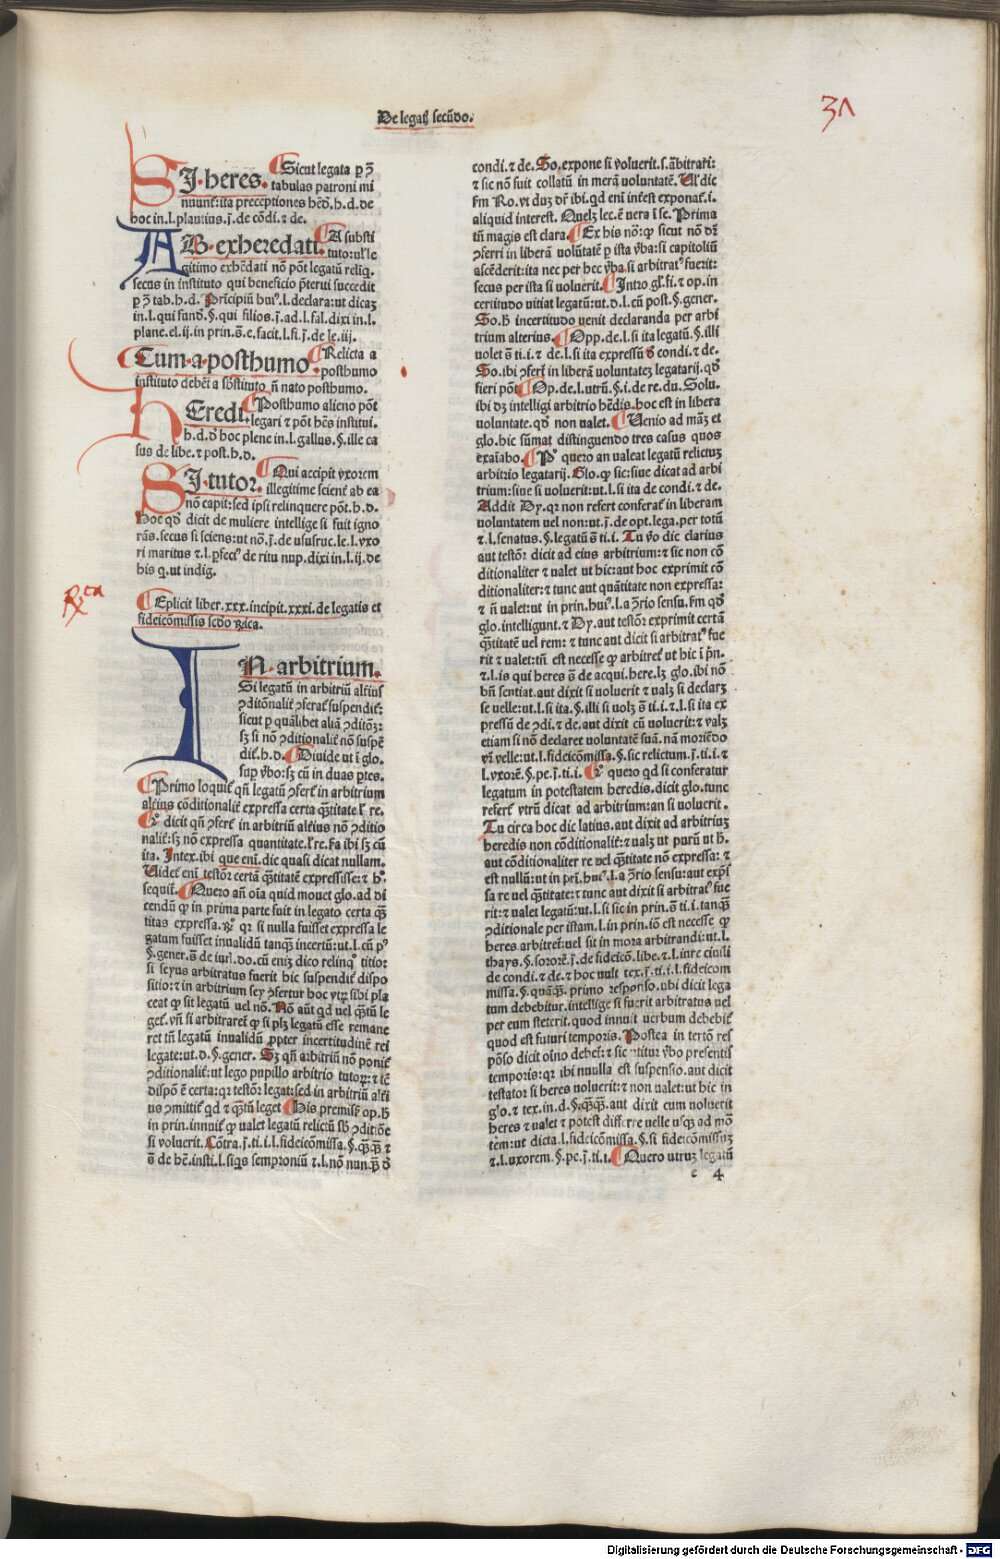 De legaꝭ secūdo.
31
SI·heres. ¶ Sicut legata p ↄ̄
tabulas patroni mi
nuunt᷑: ita preceptiones hēd. h. d. de
hoc in. l. plautius. j̄. de cōdi. ⁊ de.
AB·exheredati. ¶ A substi
tuto: ul᷑ le
gitimo exhēdati nō pōt legatū relīq.
secus in instituto qui beneficio p̄terui succedit
p ↄ̄ tab. h. d. Prīcipiū huiꝰ. l. declara: ut dicaꝫ
in. l. qui fund. §. qui filios. j̄. ad. l. fal. dixi in. l.
plane. el. ij. in prin. s̄. e. facit. l. fi. j̄. de le. iij.
¶ Cum·a·posthumo. ¶ Relicta a
posthumo
instituto debēt a sb̄stituto n̄ nato posthumo.
HEredi. ¶ Posthumo alieno pōt
legari ⁊ pōt hēs institui.
h. d. ꝺ hoc plene in. l. gallus. §. ille ca
sus de libe. ⁊ post. h. d.
SI·tutor. ¶ Qui accipit vxorem
illegitime scient᷑ ab ea
nō capit: sed ipsi relinquere pōt. h. d.
Hoc qd̄ dicit de muliere intellige si fuit igno
rās. secus si sciens: ut nō. j̄. de ususruc. le. l. vxo
ri maritus ⁊. l. p̄fecꝰ de ritu nup. dixi in. l. ij. de
his q. ut indig.
℞ca
¶ Explicit liber. xxx. incipit. xxxi. de legatis et
fideicōmissis scdo ꝶica.
IN·arbitrium.
Si legatū in arbitriū alt᷑ius
ↄditōnalit᷑ ↄferat᷑ suspendit᷑:
sicut p quālibet aliā ↄditōꝫ:
sꝫ si nō ↄditionalit᷑ nō suspē
dit᷑. h. d. ¶ Diuide ut ī glo.
sup v̄bo: sꝫ cū in duas ꝑtes.
¶ Primo loquit᷑ qn̄ legatū ↄfert᷑ in arbitrium
alt᷑ius cōditionalit᷑ expressa certa q̄titate l᷑ re.
¶ 2ꝰ dicit qn̄ ↄfert᷑ in arbitriū alt᷑ius nō ↄditio
nalit᷑: sꝫ nō expressa quantitate. l᷑ re. 2a ibi sꝫ cū
ita. In tex. ibi que enī. dic quasi dicat nullam.
Videt᷑ enī testōr certā q̄titatē expressisse: ⁊ hꝰ.
sequit᷑. ¶ Quero an̄ oīa quid mouet glo. ad di
cendū ꝙ in prima parte fuit in legato certa q̄
titas expressa. ꝶꝰ qꝛ si nulla fuisset expressa le
gatum fuisset inualidū tanq̄ incertū: ut. l. cū pꝰ
§. gener. s̄. de iur. do. cū eniꝫ dico relinqꝰ titio:
si seyus arbitratus fuerit hic suspendit᷑ dispo
sitio: ⁊ in arbitrium sey ↄfertur hoc vtꝝ sibi pla
ceat ꝙ sit legatū uel nō. Nō aūt qd uel q̄tū le
get. vn̄ si arbitraret᷑ ꝙ si plꝫ legatū esse remane
ret tn̄ legatū inualidū ꝓpter incertitudinē rei
legate: ut. d. §. gener. Sꝫ qn̄ arbitriū nō ponit᷑
ↄditionalit᷑: ut lego pupillo arbitrio tutorꝝ: ⁊ tc̄
dispō ē certa: qꝛ testōr legat: sed in arbitriū alt᷑i
us ↄmittit᷑ qd ⁊ q̄tū leget ¶ His premissꝭ op. ꝙ
in prin. innuit᷑ ꝙ ualet legatū relictū sb̄ ↄditiōe
si voluerit. Cōtra. j̄. ti. i. l. fideicōmissa. §. q̄q̄ ⁊
s̄. de hē. insti. l. siqs sempronīū ⁊. l. nō nunq̄ ꝺ
condi. ⁊ de. So. expone si voluerit. s. ābitrari:
⁊ sic nō fuit collatū in merā voluntatē. Vl᷑ dic
fm̄ Ro. vt duꝫ dr̄ ibi. qd enī int᷑est exponat᷑. i.
aliquid interest. Quelꝫ lec. ē uera ī se. Prima
tn̄ magis est clara. ¶ Ex his nō: ꝙ sicut nō dꝫ
ↄferri in liberā volūtatē p ista v̄ba: si capitoliū
ascēderit: ita nec per hec v̄ba si arbitratꝰ fuerit:
secus per ista si uoluerit. ¶ Intro gl. fi. ⁊ op. in
certitudo uitiat legatū: ut. d. l. cū post. §. gener.
So. h̄ incertitudo uenit declaranda per arbi
trium alterius. ¶ Opp. de. l. si ita legatū. §. illi
uolet s̄ ti. i. ⁊ de. l. si ita expressū ꝺ condi. ⁊ de.
So. ibi ↄfert᷑ in liberā uoluntateꝫ legatarij. qd̄
fieri pōt ¶ Op. de. l. utrū. §. i. de re. du. Solu.
ibi dꝫ intelligi arbitrio hēdis. hoc est in libera
uoluntate. qd̄ non ualet. ¶ Uenio ad māꝫ et
glo. hic sūmat᷑ distinguendo tres casus quos
exaīabo. ¶ Pꝰ quero an ualeat legatū relictuꝫ
arbitrio legatarij. Glo. ꝙ sic: siue dicat ad arbi
trium: siue si uoluerit: ut. l. si ita de condi. ⁊ de.
Addit Dy. qꝛ non refert conferat᷑ in liberam
uoluntatem uel non: ut. j̄. de opt. lega. per totū
⁊. l. senatus. §. legatū s̄ ti. i. Tu v̄o dic clarius
aut testōr dicit ad eius arbitrium: ⁊ sic non cō
ditionaliter ⁊ valet ut hic: aut hoc exprimit cō
ditionaliter: ⁊ tunc aut quātitate non expressa:
⁊ n̄ ualet: ut in prin. huiꝰ. l. a ↄ̄rio sensu. fm̄ qd̄
glo. intelligunt. ⁊ Dy. aut testōr exprimit certā
q̄titatē uel rem: ⁊ tunc aut dicit si arbitratꝰ fue
rit ⁊ ualet: tn̄ est necesse ꝙ arbitret᷑ ut hic ī p̄n.
⁊. l. is qui heres s̄ de acqui. here. lꝫ glo. ibi nō
bn̄ sentiat. aut dixit si uoluerit ⁊ ualꝫ si declarꝫ
se uelle: ut. l. si ita. §. illi si uolꝫ s̄ ti. i. ⁊. l. si ita ex
pressū de ↄdi. ⁊ de. aut dixit cū uoluerit: ⁊ valꝫ
etiam si nō declaret voluntatē suā. nā moriēdo
vr̄ velle: ut. l. fideicōmissa. §. sic relictum. j̄. ti. i. ⁊
l. vxorē. §. pe. j̄. ti. i. ¶ 2ꝰ quero qd si conferatur
legatum in potestatem heredis. dicit glo. tunc
refert᷑ vtrū dicat ad arbitrium: an si uoluerit.
Tu circa hoc dic latius. aut dixit ad arbitriuꝫ
heredis non cōditionalit᷑: ⁊ ualꝫ ut purū ut h̄.
aut cōditionaliter re vel q̄titate nō expressa: ⁊
est nullū: ut in prī. huiꝰ. l. a ↄ̄rio sensu: aut exp̄s
sa re uel q̄titate: ⁊ tunc aut dixit si arbitratꝰ fue
rit: ⁊ valet legatū: ut. l. si sic in prin. s̄ ti. i. tanq̄
ↄditionale per istam. l. in prin. iō est necesse ꝙ
heres arbitret᷑: uel sit in mora arbitrandi: ut. l.
thays. §. sororē. j̄. de fideicō. libe. ⁊. l. iure ciuili
de condi. ⁊ de. ⁊ hoc uult tex. j̄. ti. i. l. fideicom
missa. §. quāq̄. primo responso. ubi dicit lega
tum debebitur. intellige si fuerit arbitratus uel
per eum steterit. quod innuit uerbum debebit᷑
quod est futuri temporis. Postea in tertō res
pōso dicit olno debet᷑: ⁊ sic utitur v̄bo presentis
temporis: qꝛ ibi nnulla est suspensio. aut dicit
testator si heres voluerit: ⁊ non ualet: ut hic in
glo. ⁊ tex. in. d. §. q̄q̄. aut dixit cum uoluerit
heres ⁊ ualet ⁊ potest differre uelle usq̄ ad mō
tem: ut dicta. l. fideicōmissa. §. si fideicōmissuꝫ
⁊. l. uxorem. §. pe. j̄. ti. i. ¶ Quero utruꝫ legatū
e 4
Digitalisierung gefördert durch die Deutsche Forschungsgemeinschaft - DFG